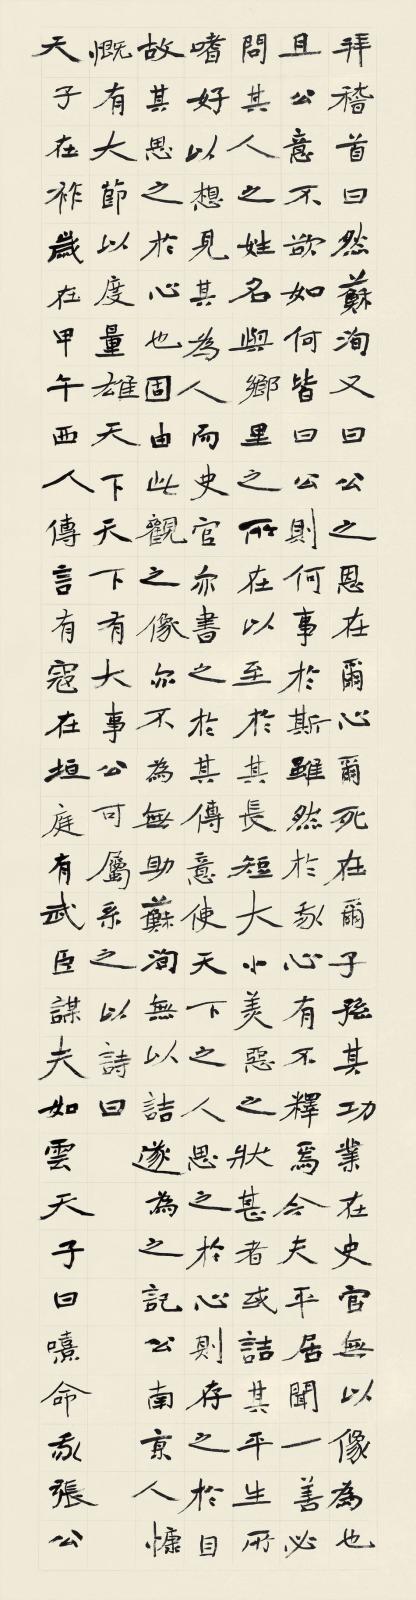 拜稽首曰然蘇洵又曰公之恩在爾心爾死在爾子孫其功業在史官無以像為也
且公意不欲如何皆曰公則何事於斯雖然於我心有不釋焉今夫平居聞一善必
問其人之姓名與鄉里之所在以至於其長短大小美惡之狀甚者或詰其平生所
嗜好以想見其為人而史官亦書之於其傳意使天下之人思之於心則存之於目
故其思之於心也固由此觀之像亦不為無助蘇洵無以詰遂為之記公南京人慷
慨有大節以度量雄天下天下有大事公可屬系之以詩曰
天子在祚歲在甲午西人傳言有寇在垣庭有武臣謀夫如雲天子曰嘻命我張公